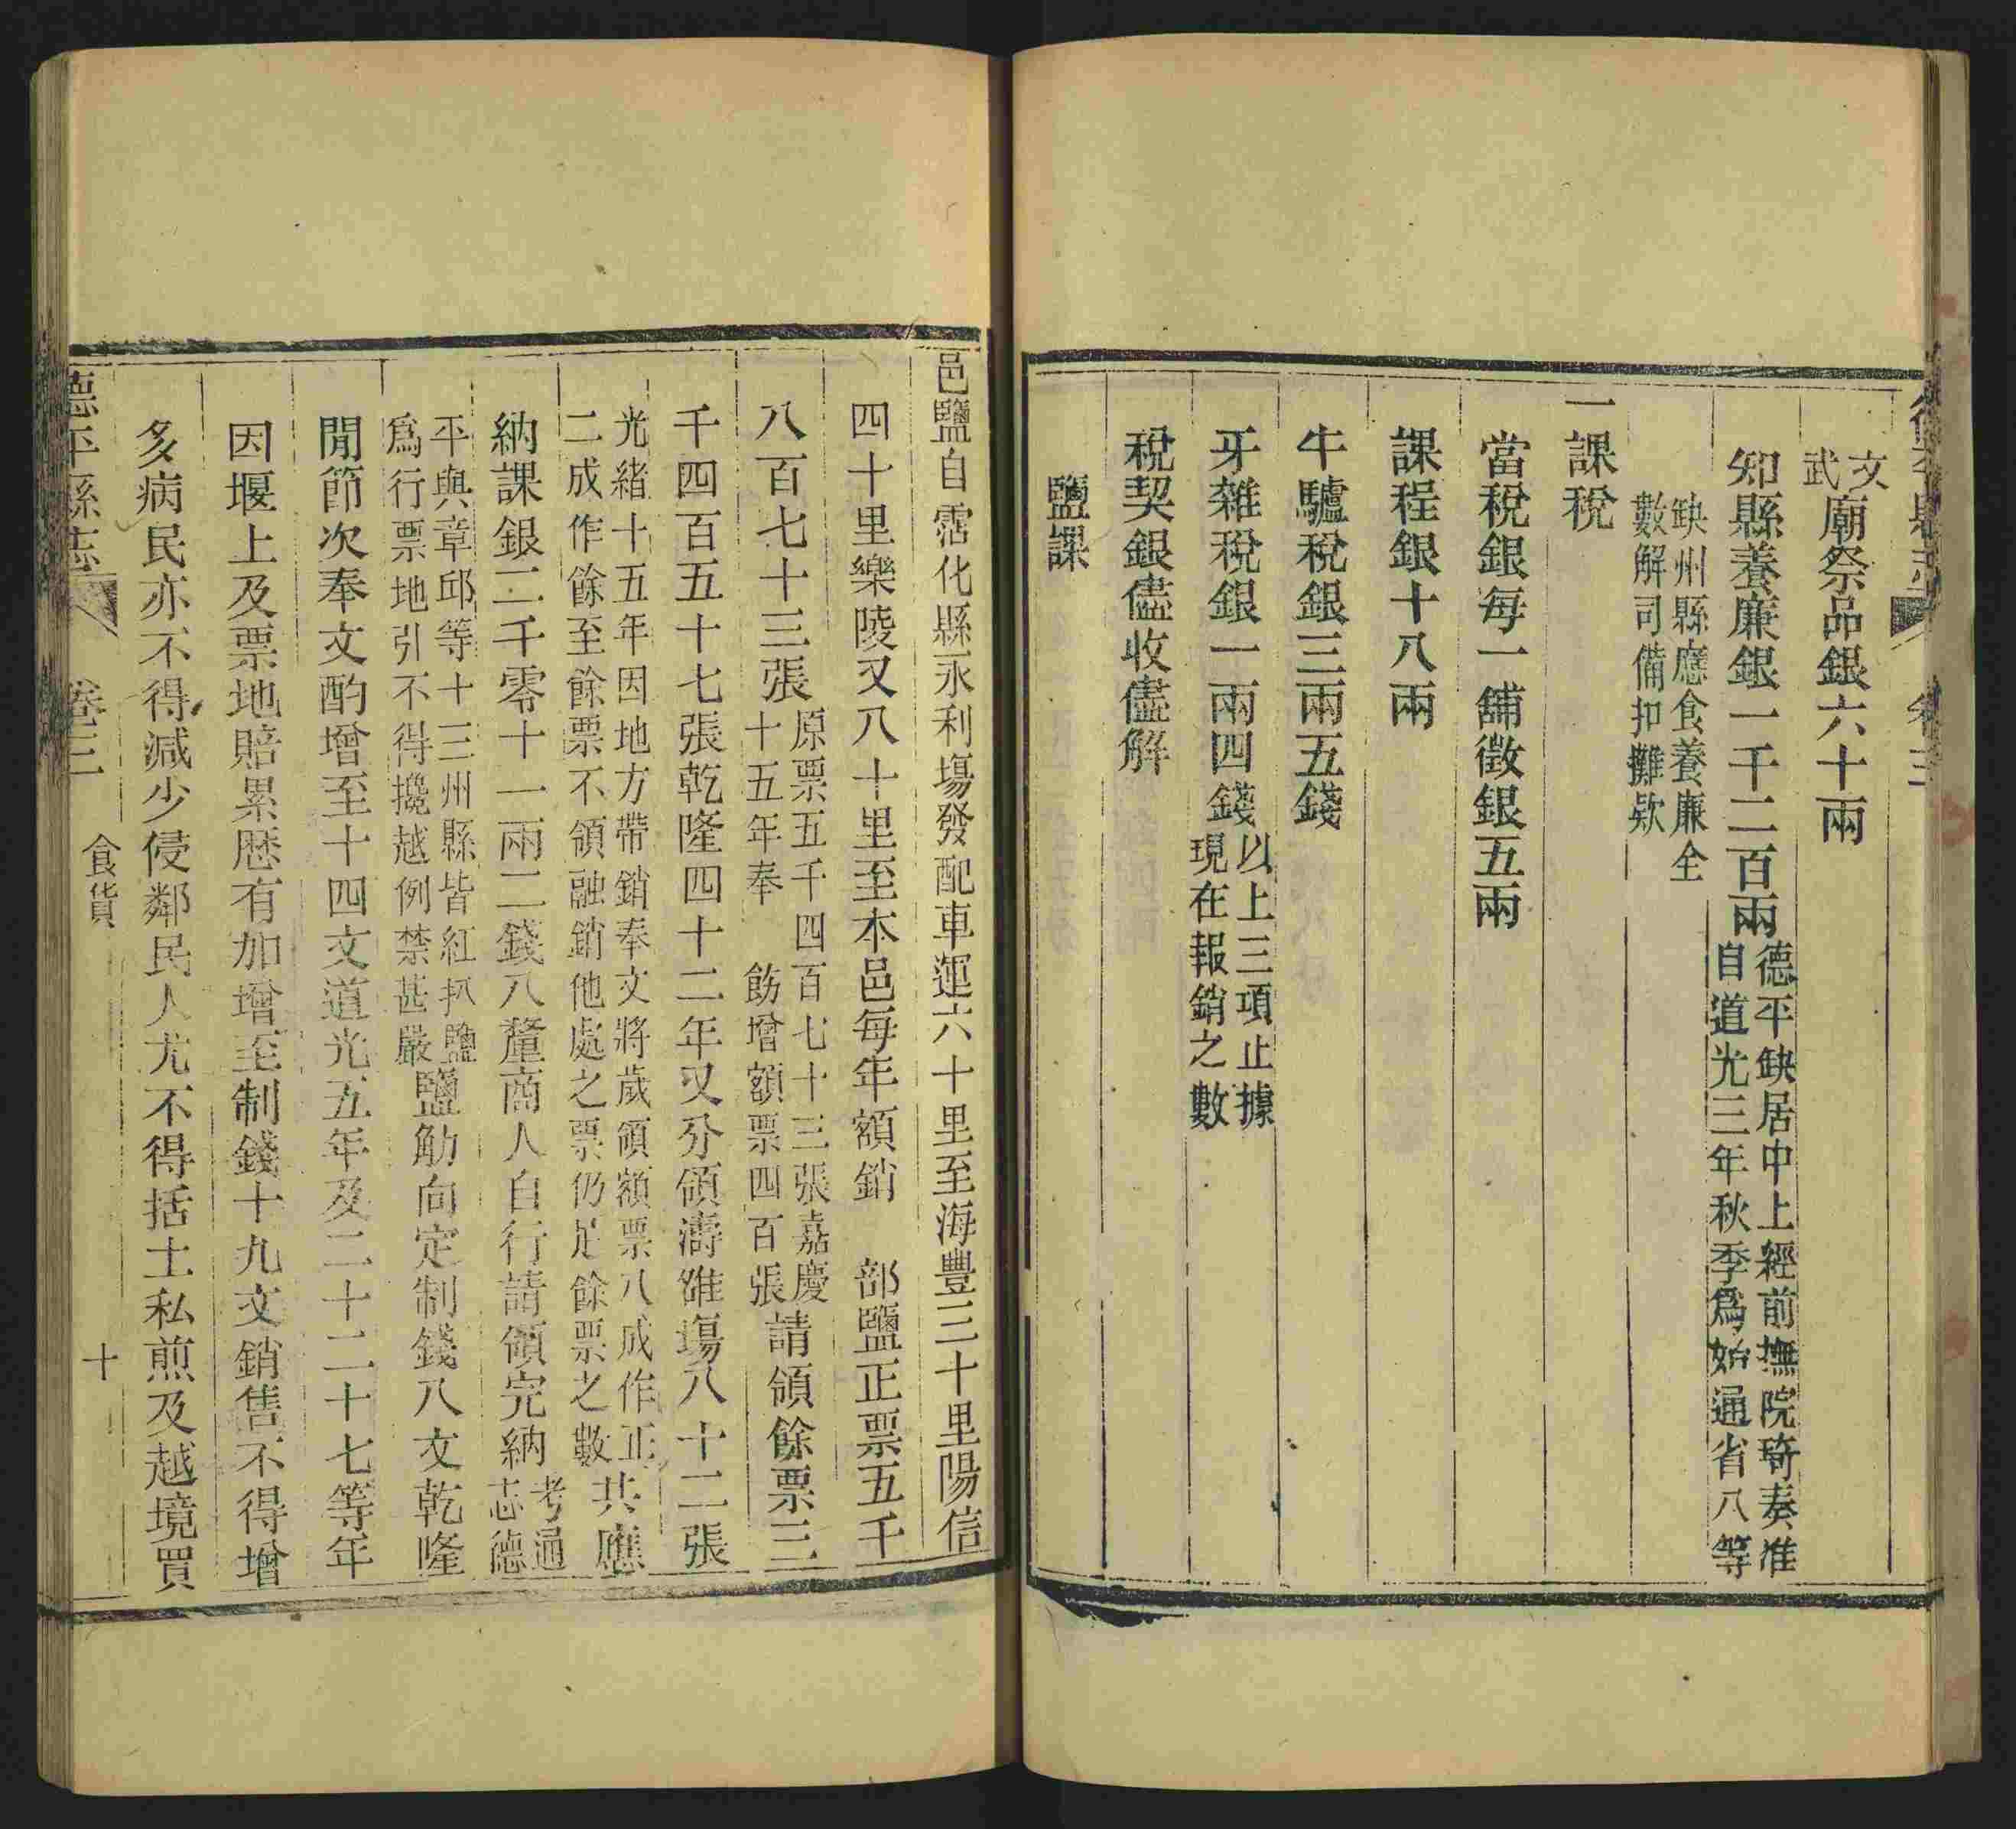 文武廟祭品銀六十兩
知縣養廉銀一千二百兩
德平缺居中上經前撫院琦奏准
自道光三年秋季爲始通省八等
缺州縣應食養廉全
數解司備扣攤欵
一課稅
當稅銀每一舖徵銀五兩
課程銀十八兩
牛驢稅銀三兩五錢
牙雜稅銀一兩四錢
以上三項止據
現在報銷之數
稅契銀儘收儘解
鹽課
邑鹽自霑化縣永利塲發配車運六十里至海豐三十里陽信
四十里樂陵又八十里至本邑每年額銷 部鹽正票五千
八百七十三張
原票五千四百七十三張嘉慶
十五年奉 飭增額票四百張
請領餘票三
千四百五十七張乾隆四十二年又分領濤雒塲八十二張
光緒十五年因地方帶銷奉文將歲領額票八成作正
二成作餘至餘票不領融銷他處之票仍足餘票之數
共應
納課銀二千零十一兩二錢八釐商人自行請領完納
考通
志德
平與章邱等十三州縣皆紅扒鹽
爲行票地引不得攙越例禁甚嚴
鹽觔向定制錢八文乾隆
間節次奉文酌增至十四文道光五年及二十二十七等年
因堰上及票地賠累歷有加增至制錢十九文銷售不得增
多病民亦不得減少侵鄰民人尤不得括土私煎及越境買
德平縣志 卷三 食貨 十